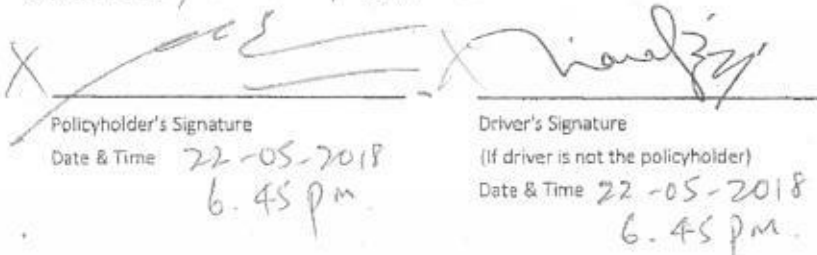 X X
Policyholder's Signature
Date & Time 22-05-2018
6.45 pm.
Driver's Signature
(If driver is not the policyholder)
Date & Time 22-05-2018
6.45 pm.